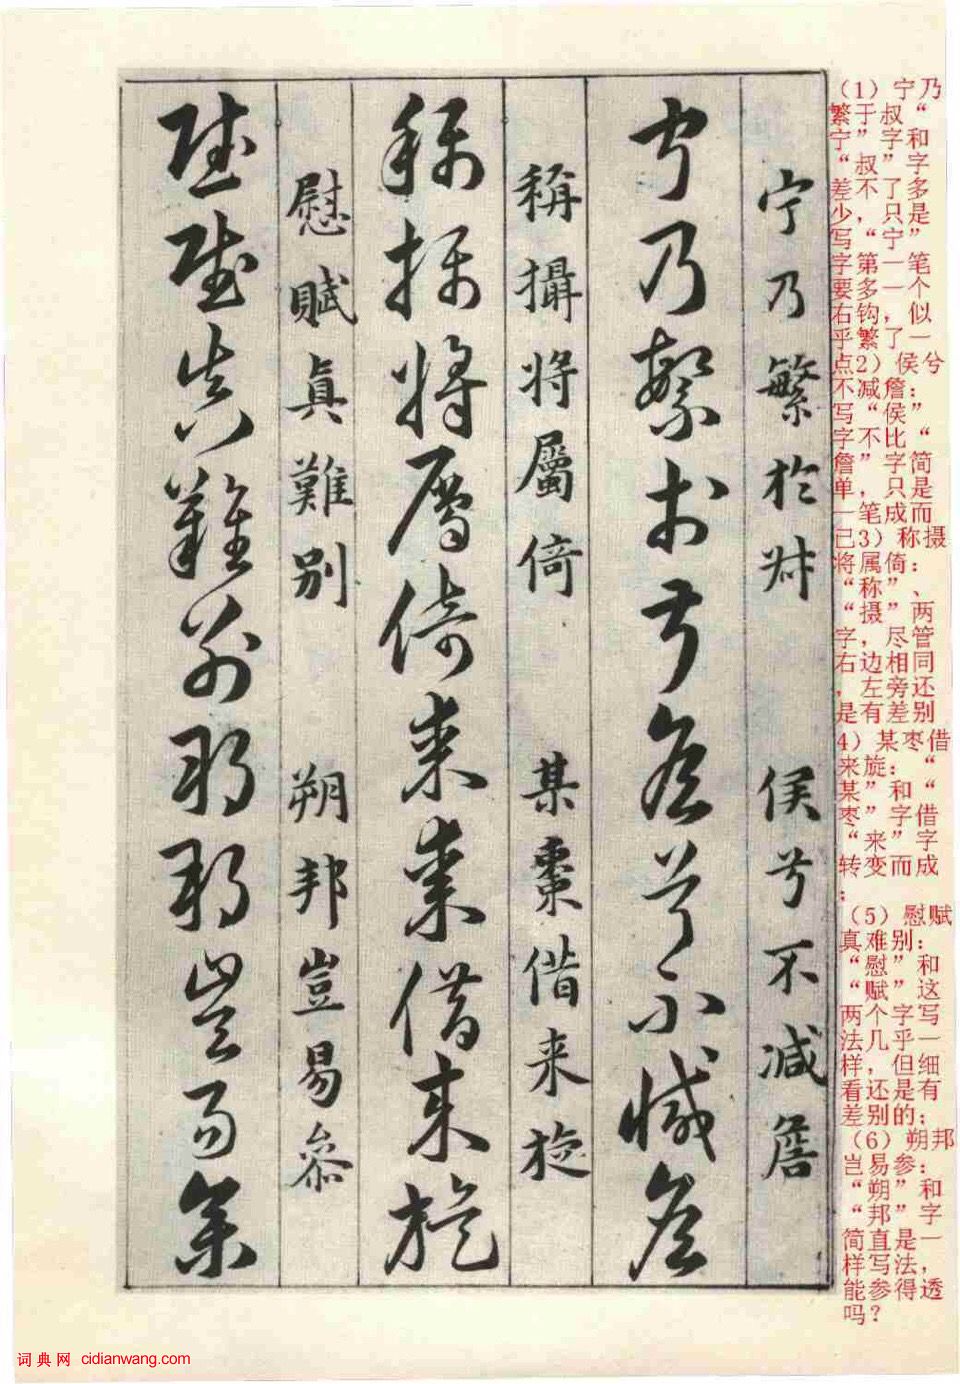 宁乃繁於叔 侯兮不减詹
宁乃繁於叔侯兮不减詹
稱攝將屬倚 某棗借来旋
稱攝將屬倚某棗借来旋
慰賦真難別 朔邦豈易參
慰賦真難別朔邦豈易參
（1）宁乃
繁于叔“
宁”字和
“叔”字
差不了多
少，只是
写“宁”
字第一笔
要多一个
右钩，似
乎繁了一
点2）侯兮
不减詹：
写“侯”
字不比“
詹”字简
单，只是
一笔成而
已3）称摄
将属倚：
“称”、
“摄”两
字，尽管
右边相同
，左旁还
是有差别
4）某枣借
来旋：“
某”和“
枣”字借
“来”字
转变而成
；
（5）慰赋
真难别：
“慰”和
“赋”这
两个字写
法几乎一
样，但细
看还是有
差别的；
（6）朔邦
岂易参：
“朔”和
“邦”字
简直是一
样写法，
能参得透
吗？
词典网 cidianwang.com